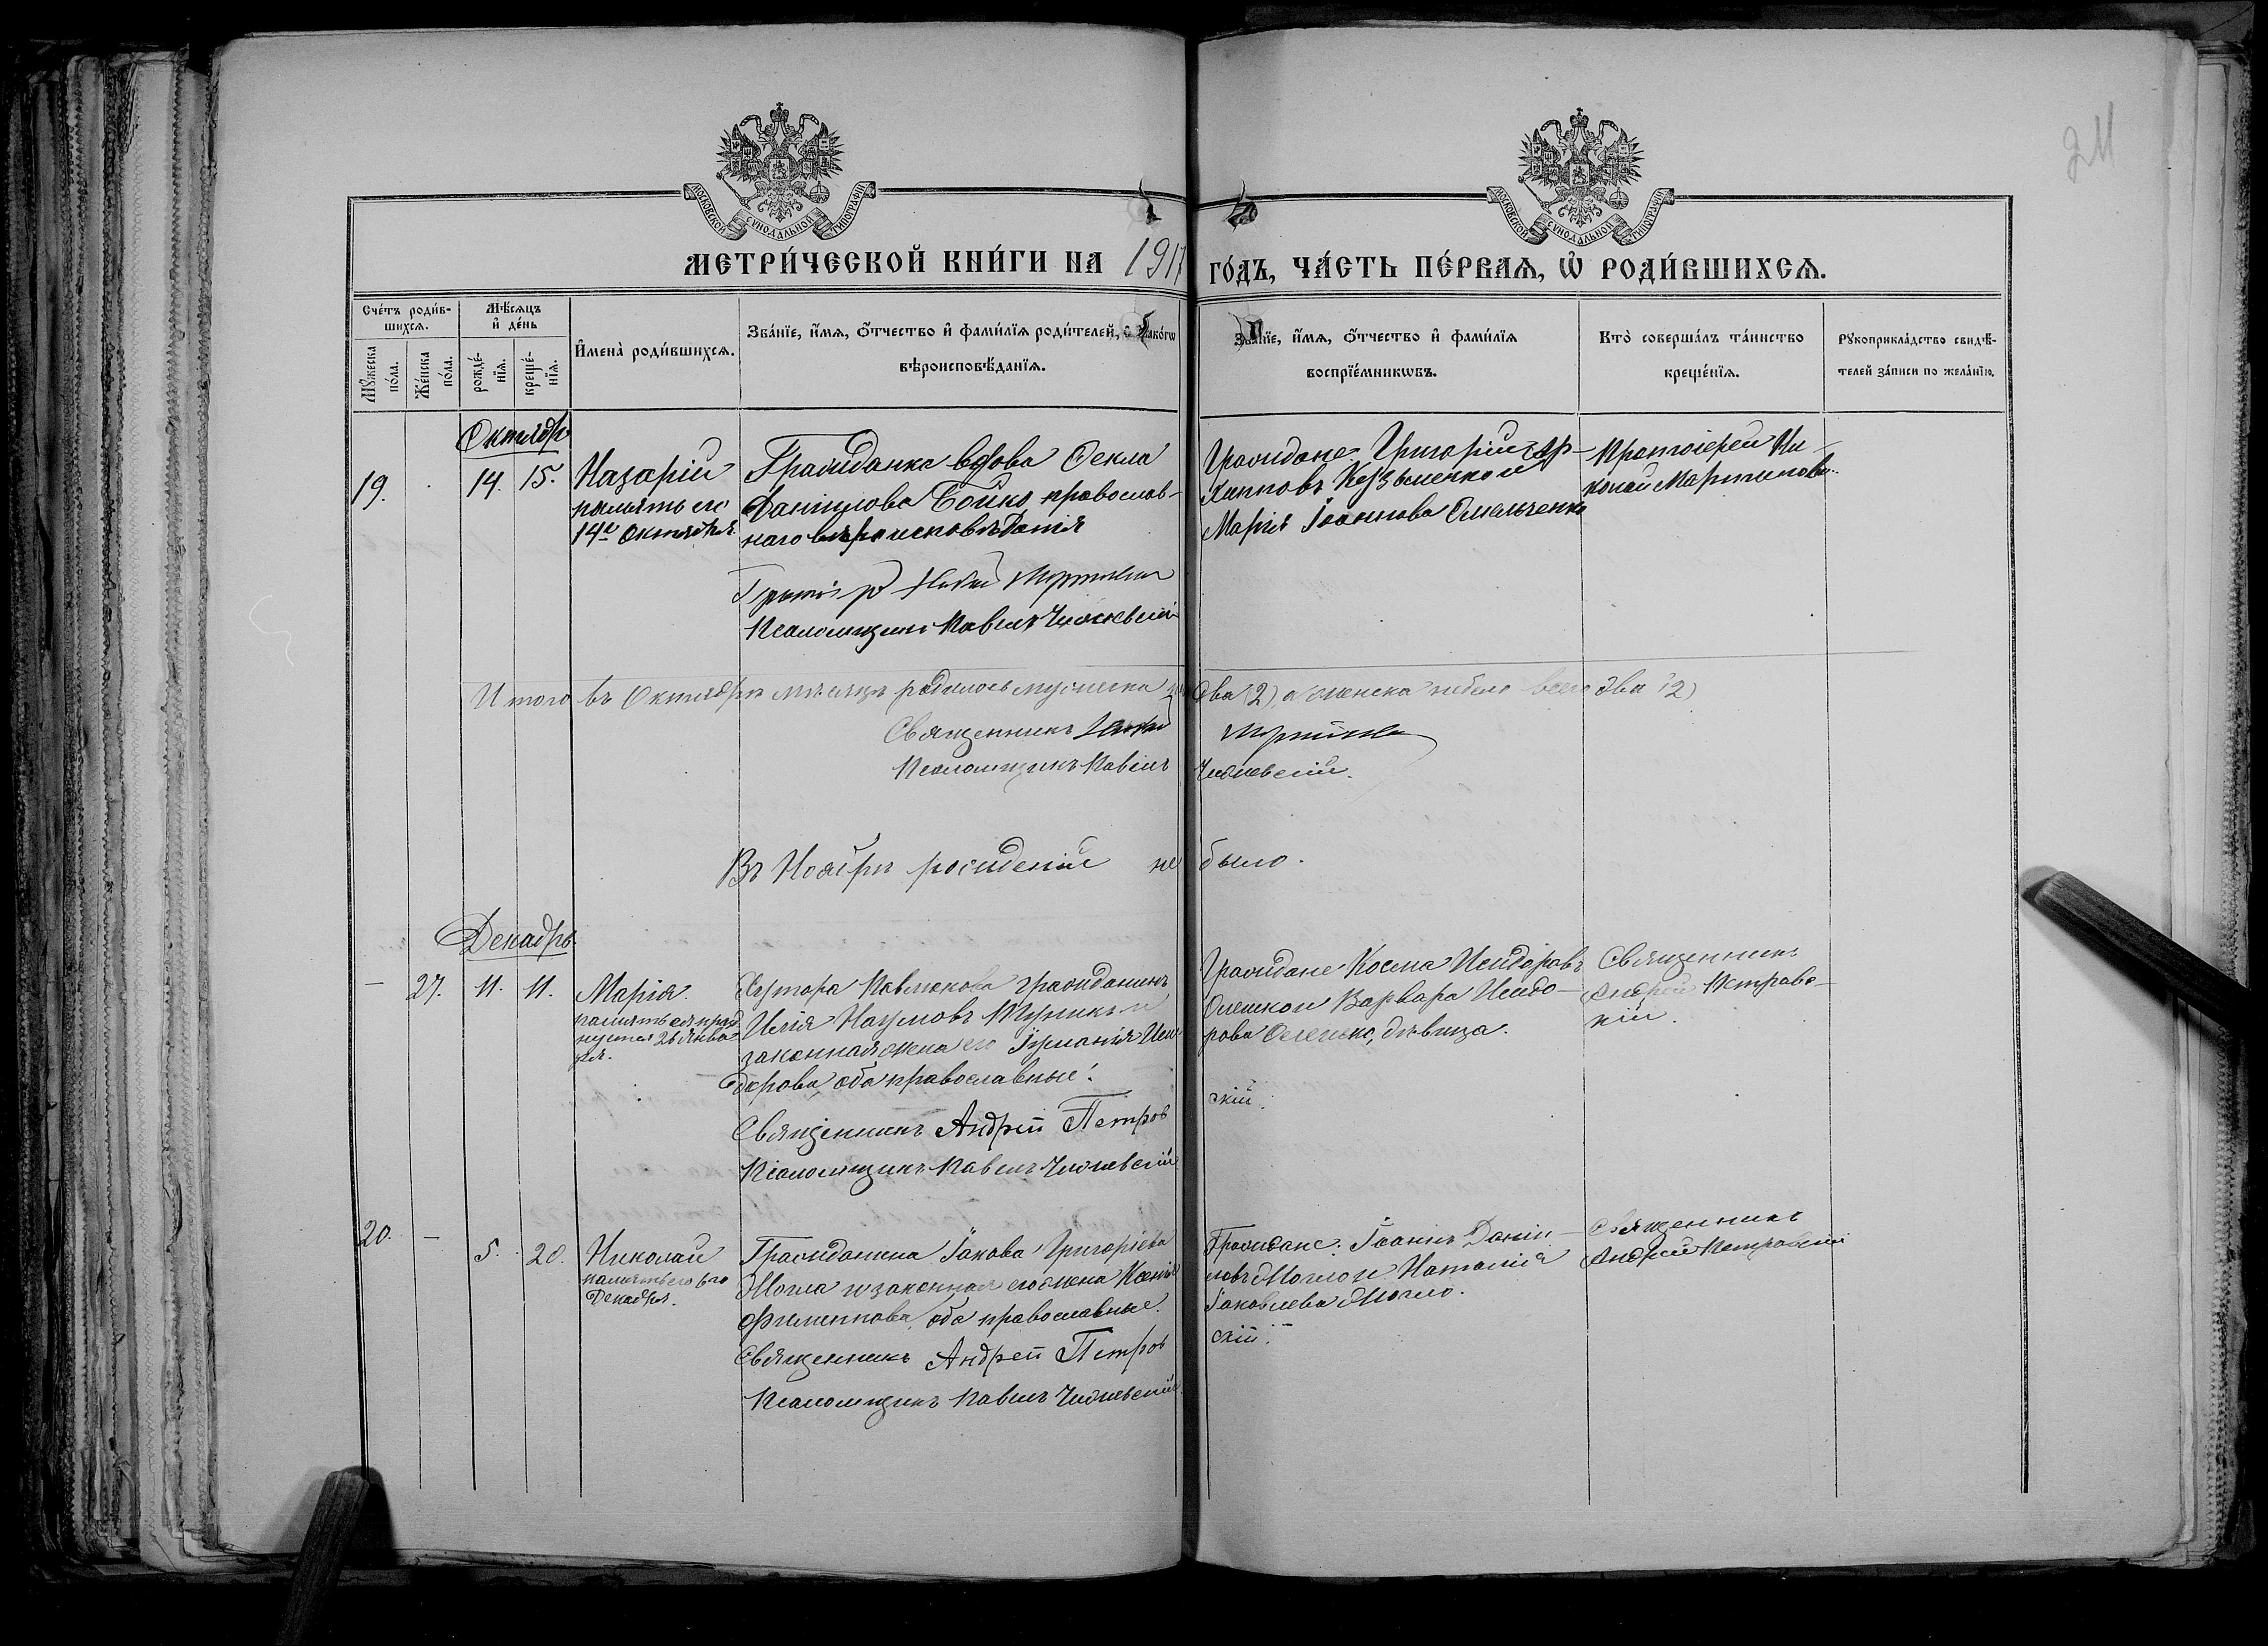 211
МОСКОВСКОЙ СѴНОДАЛЬНОЙ ТИПОГРАФІИ
МОСКОВСКОЙ СѴНОДАЛЬНОЙ ТИПОГРАФІИ
МЕТРИ́ЧЕСКОЙ КНИ́ГИ НА 1917 ГО́ДЪ, ЧА́СТЬ ПЕ́РВАѦ, Ѡ҆ РОДИ́ВШИХСѦ.
Сче́тъ роди́в-
шихсѧ.
Мꙋ́жеска
по́ла.
Же́нска
по́ла.
Мѣ́сѧцъ
и҆ де́нь
рожде́-
нїѧ.
креще́-
нїѧ.
И҆мена̀ роди́вшихсѧ.
Зва́нїе, и҆́мѧ, ѻ҆́тчество и҆ фами́лїѧ роди́телей, и҆ како́гѡ
вѣроисповѣ́данїѧ.
Зва́нїе, и҆́мѧ, ѻ҆́тчество и҆ фами́лїѧ
воспрїе́мникѡвъ.
Кто̀ соверша́лъ та́инство
креще́нїѧ.
Рꙋкоприкла́дство свидѣ́-
телей за́писи по жела́нїю.
Октябр
19. 14. 15.
Назарій
память его
14го Октября
Гражданка вдова Ѳекла
Даніилова Бойко православ-
наго вѣроисповѣданія
Псаломщикъ Павелъ
Граждане: Григорій
Кузьменко и
Марія Іоаннова Омельченко
Протоіерей Ни-
колай Мартинов
Итого въ Октябрѣ мѣсяцѣ родилось мужеска два (2), а женска небыло всего два (2)
Священникъ
Псаломщикъ Павелъ
Въ Ноябрѣ рожденій не было.
Декабрь
— 27. 11. 11.
Марія.
память ея празд
нуется 26 Янва
ря.
Хутора Павлюкова гражданинъ
Илія Наумовъ и
законная жена его Іуліанія Иси-
дорова, оба православные.
Священникъ Андрей Петров
скій.
Псаломщикъ Павелъ
Граждане Косма Исидоровъ
Олешко и Варвара Исидо-
рова Олешко, дѣвица.
Священникъ
Андрей Петровс-
кій.
20. — 5. 20.
Николай
память его 6го
Декабря.
Гражданина Іакова Григоріева
Могла и законная его жена Ксенія
Филиппова, оба православные.
Священникъ Андрей Петров
скій.
Псаломщикъ Павелъ
Граждане: Іоаннъ Даніи-
ловъ Могло и Наталія
Іаковлева Могло.
Священникъ
Андрей Петровскій